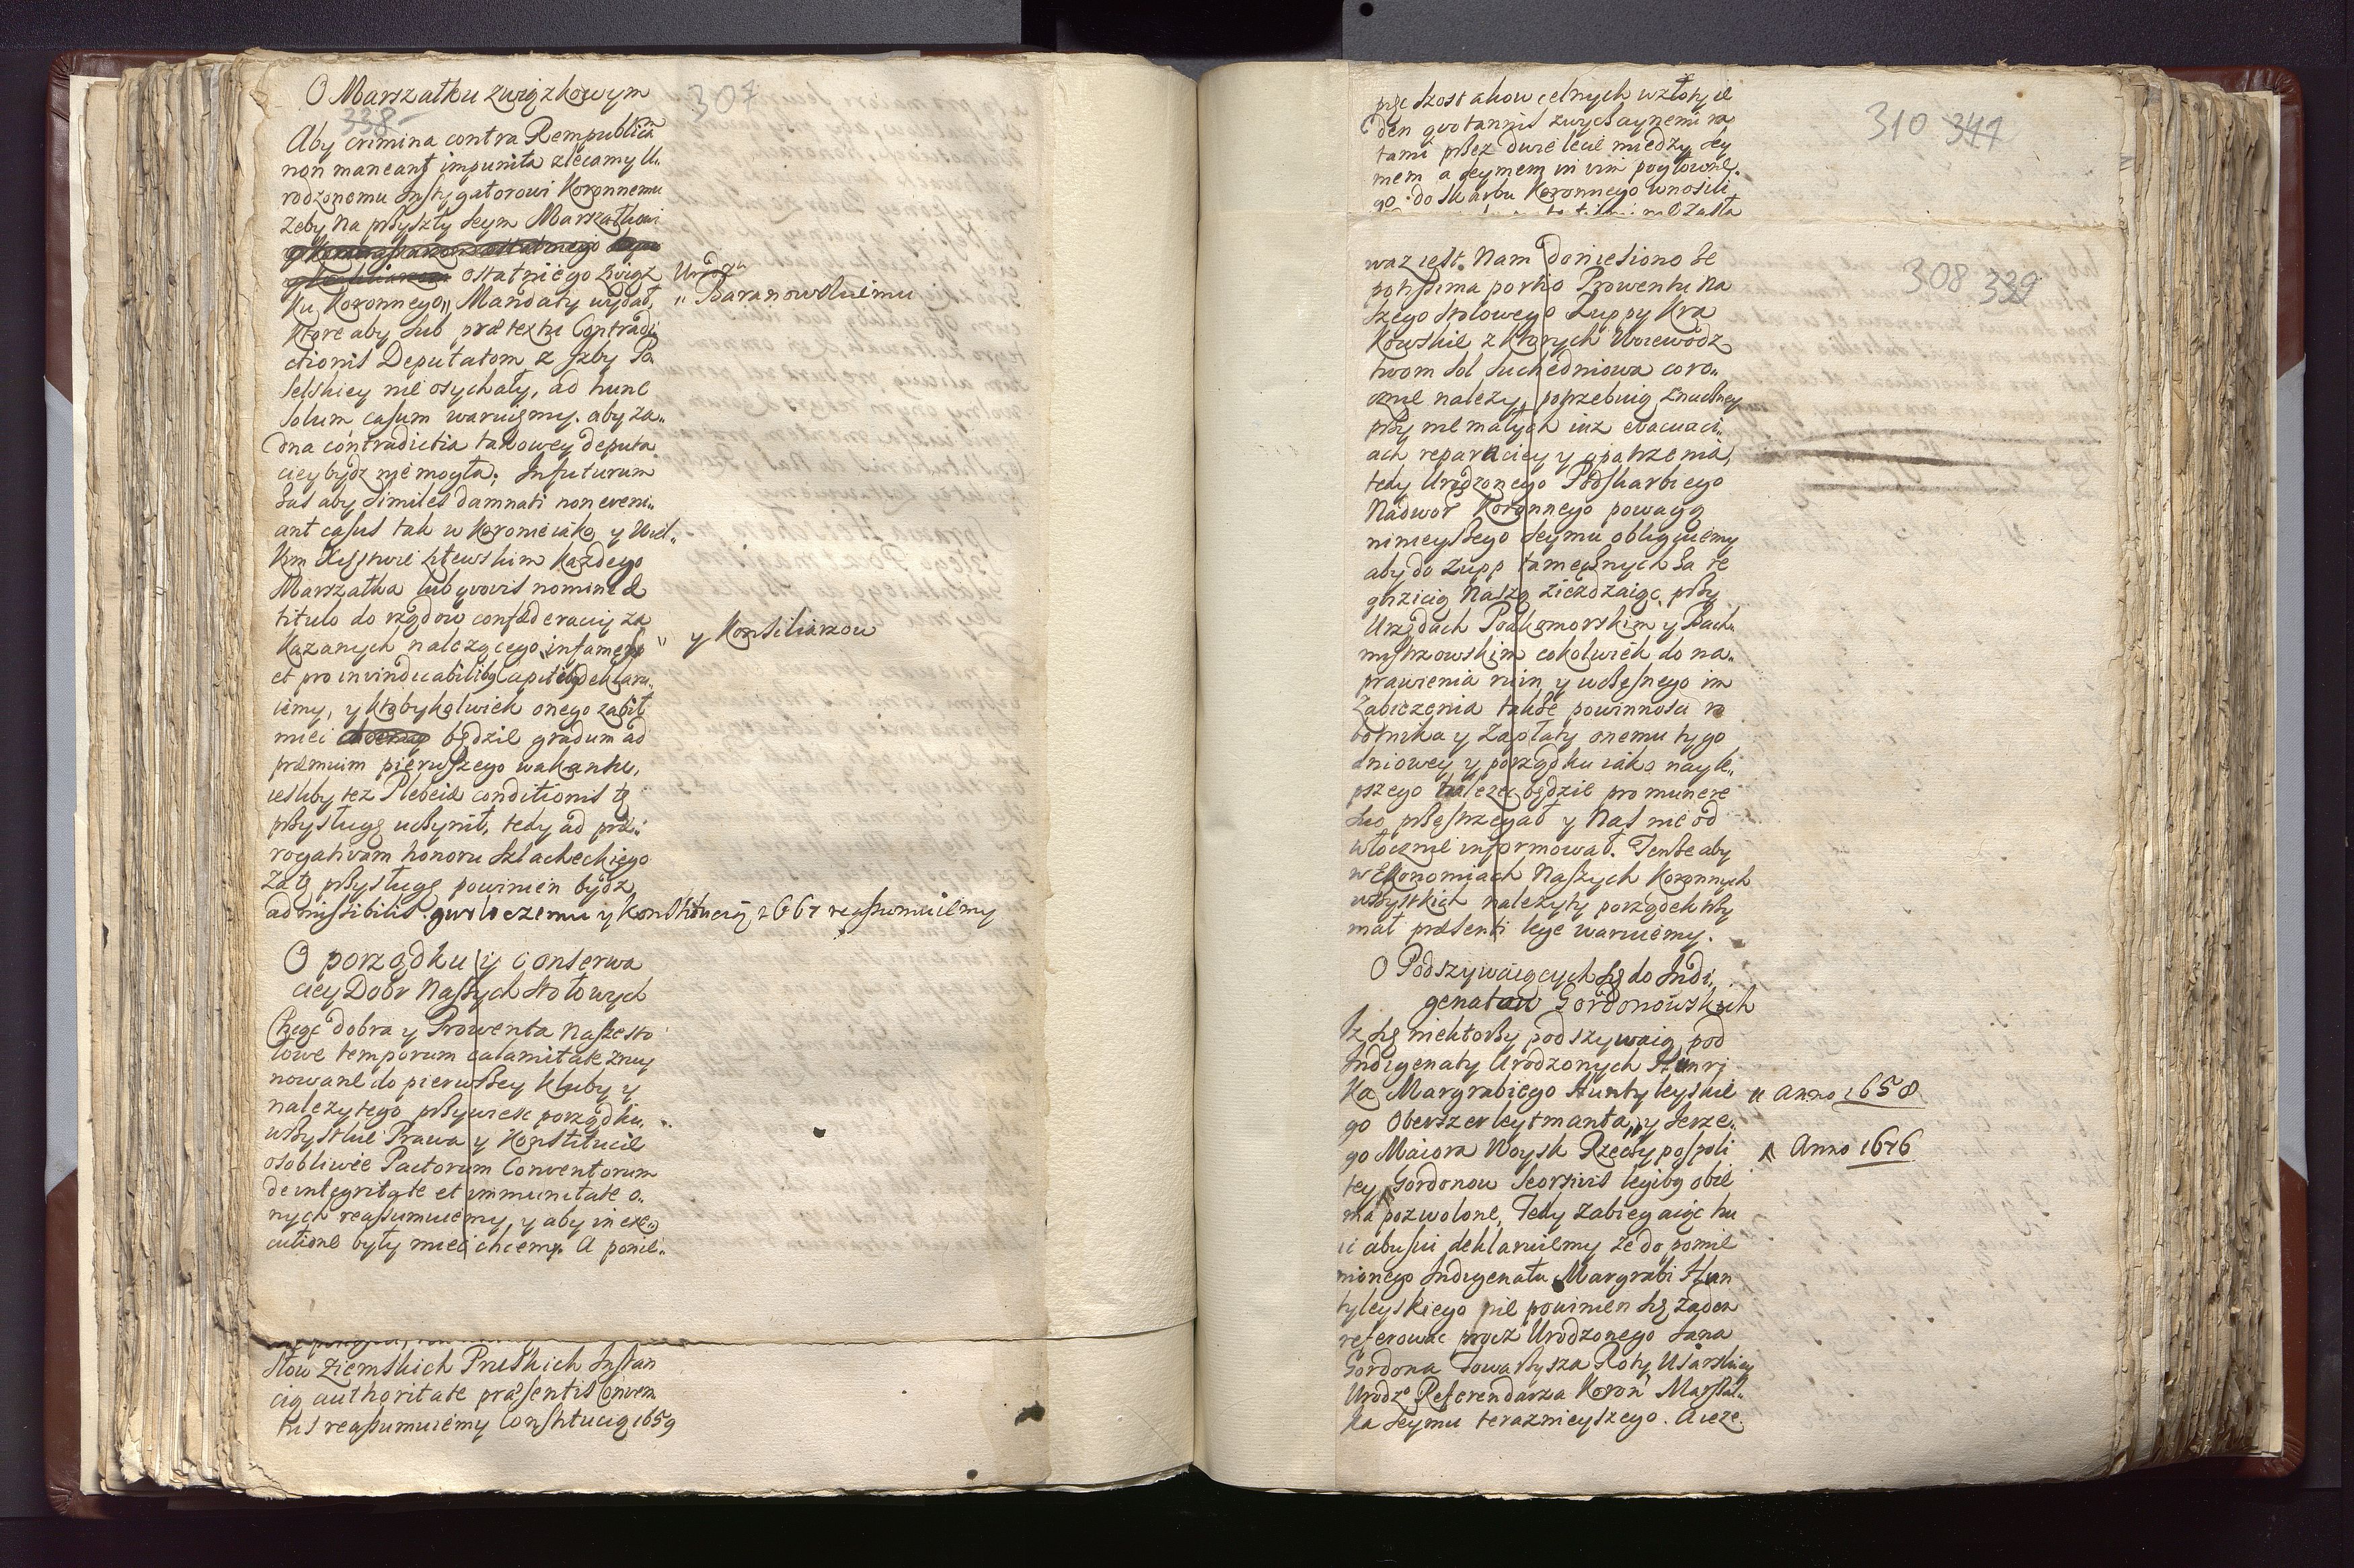 O Marszałku związkowym
307
338
Aby crimina contra Rempublicam
non maneant impunita zlecamy U..
rodzonemu Instygatorowi Koronnemu
żeby na przyszły Seym Marszałkowi
ostatniego związ Urodzu
ku Koronnego,, Mandaty wydał, ,, Baranowskiemu
ktore aby sub prætextu Contradi
ctionis Deputatom z Izby Po
selskiey nie osychały, ad hunc
solum casum waruięmy. aby ża..
dna contradictia takowey deputa
ciey bydz nie mogła; In futurum
Zas aby similes damnati non eveni..
ant casus tak w Koronie iako y Wiel..
kim Xięstwie Litewskim każdego
Marszałka lub quovis nomine &
titulo do rządow confæderaciy za
kazanych należącego infamem " y Konsiliarzow
et pro invindicabilibus capitibus deklaru..
iemy, y ktobykolwiek onego zabił
mieć będzie gradum ad
præmium pierwszego wakansu,
iesliby też Plebeiæ conditionis tę
przysługę uczynił, tedy ad præ..
rogativam honoru szlacheckiego
za tę przysługę powinien bydz
admissibilis. gwoli czemu y Konstitucią 1667 reassumuiemy
O porządku y conserwa
ciey Dobr Naszych stołowych
Chcąc dobra y Prowenta Nasze sto
łowe temporum calamitate zruy
nowane do pierwszey kluby y
należytego przywiesc porządku.
wszystkie Prawa y Konstitucie
osobliwie Pactorum Conventorum
de integritate et immunitate o..
nych reassumuiemy, y aby in exe..
cutione były mieć chcemy. A ponie..
słow Ziemskich Pruskich Instan
cią authoritate præsentis Conven
tus reassumuiemy Constitucią 1659
310 311
den quotannis zwyczaynemi ra
tami przez dwie lecie między Sey
mem a seymem in vim pogłowne..
go do Skarbu Koronnego wnosili
308 339
waz iest Nam doniesiono że
potissima portio Prowentu Na
szego stolowego Zuppy Kra
kowskie z ktorych Woiewodz
twom sol suchedniowa coro..
cznie należy, potrzebuią znaczney
przy nie małych iuż evacuaci..
ach reparaciey y opatrzenia,
tedy Urodzonego Podskarbiego
Nadwor Koronnego powagą
ninieyszego Seymu obliguiemy
aby do Zupp tamecznych za re
quizicią Naszą ziezdzaiąc przy
Urzędach Podkomorskim y Bach..
mistrzowskim cokolwiek do na..
prawienia ruin y wczesnego im
zabieżenia także powinnosci ro
botnika y zapłaty onemu tygo
dniowey y porządku iako nayle..
pszego należeć będzie pro munere
suo przestrzegał y Nas nie od
włocznie informował. Tenże aby
w Ekonomiach Naszych Koronnych
wszystkich należyty porządek trzy
mał præsenti lege waruiemy.
O Podszywaiących się do Indi..
genatow Gordonowskich
Iż się niektorzy podszywaią pod
Indigenaty Urodzonych Henri
ka Margrabiego Huntyleyskie " Anno 1658
go Oberszterleytmanta, y Jerze..
go Maiora Woysk Rzeczypospoli ^ Anno 1676
tey Gordonow seorsivis legibus obie
ma pozwolone, Tedy zabiegaiąc hu
ic abusui deklaruiemy że do pomie
nionego Indigenatu Margrabi Hun
tyleyskiego nie powinien się żaden
referować procz Urodzonego Jana
Gordona Towarzysza Roty Usarskiey
Urodzo Referendarza Koron Marszał..
ka Seymu teraznieyszego. A ieze..